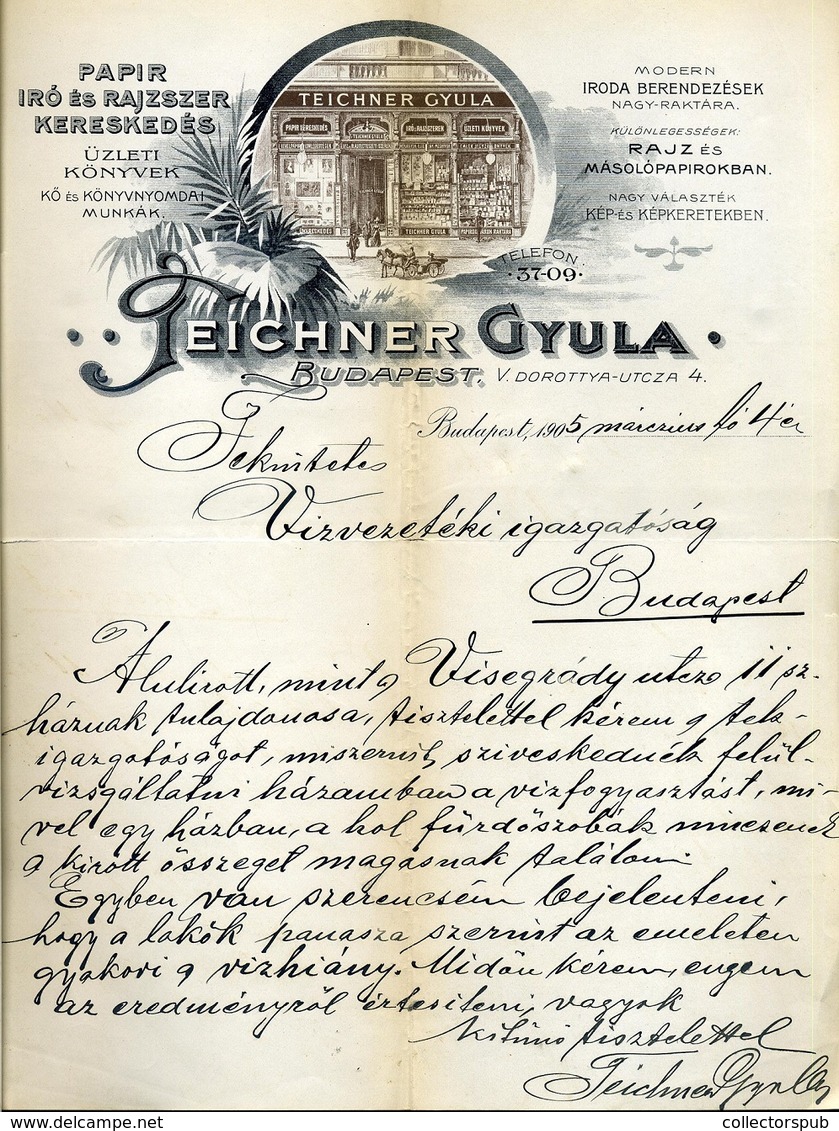 PAPIR
IRÓ és RAJZSZER
KERESKEDÉS
ÜZLETI
KÖNYVEK
KŐ és KÖNYVNYOMDAI
MUNKÁK.
TEICHNER GYULA
PAPIR KERESKEDÉS
TEICHNER GYULA
IRÓ és RAJZSZEREK
ÜZLETI KÖNYVEK
TEICHNER GYULA
MODERN
IRODA BERENDEZÉSEK
NAGY-RAKTÁRA.
KÜLÖNLEGESSÉGEK:
RAJZ és
MÁSOLÓPAPIROKBAN.
NAGY VÁLASZTÉK
KÉP-és KÉPKERETEKBEN.
TELEFON.
·37-09·
TEICHNER GYULA
BUDAPEST, V. DOROTTYA-UTCZA 4.
Budapest, 1905 márczius hó 4 én
Tekintetes
Vizvezetéki igazgatóság
Budapest
Alulirott, mint a Visegrády utcza 11 sz.
háznak tulajdonosa, tisztelettel kérem a tek-
igazgatóságot, miszerint sziveskednék felül-
vizsgáltatni házamban a vizfogyasztást, mi-
vel egy házban, a hol fürdőszobák nincsenek
a kirótt összeget magasnak találom.
Egyben van szerencsém bejelenteni,
hogy a lakók panasza szerint az emeleten
gyakori a vizhiány. Midőn kérem, engem
az eredményről értesiteni, vagyok
kitünő tisztelettel
Teichner Gyula
collectorspub